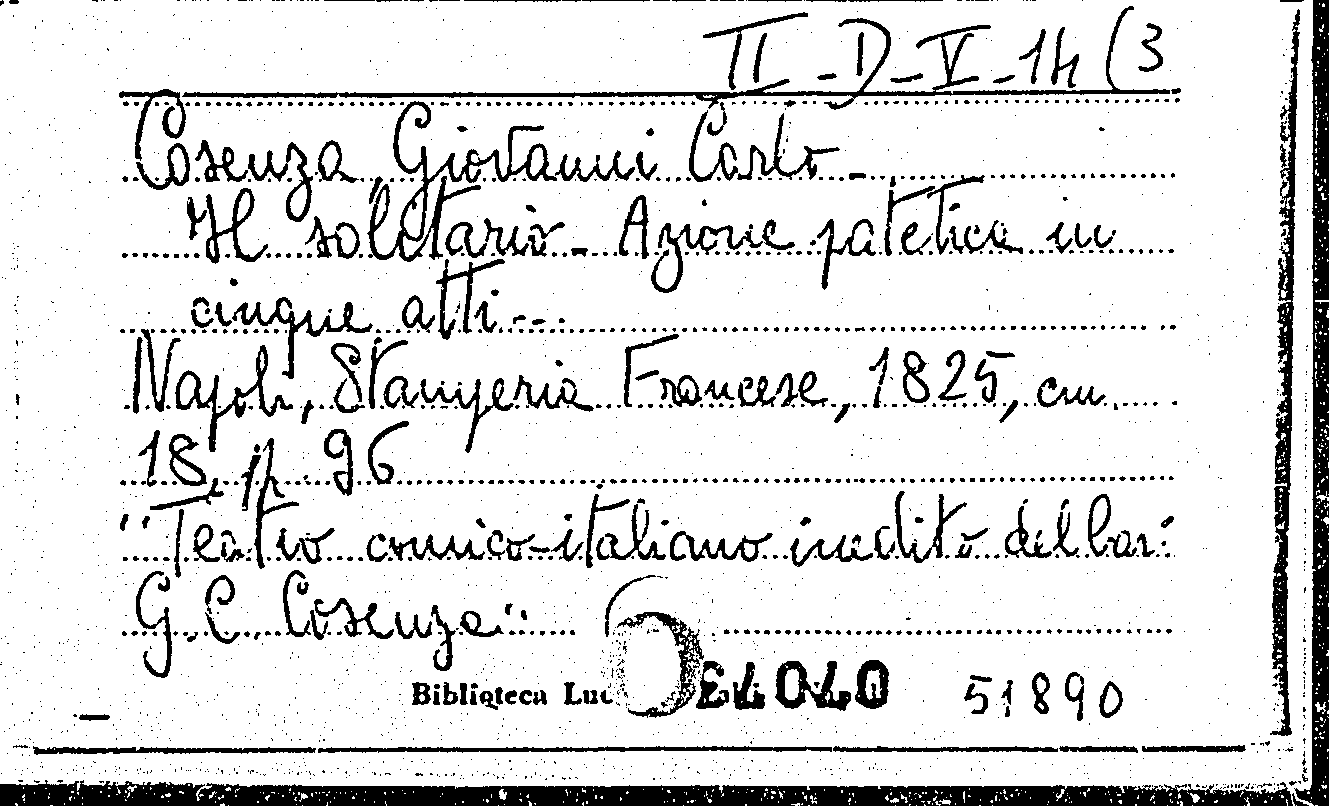 II-D-V-14 (3
Cosenza, Giovanni Carlo -
Il solitario - Azione patetica in
cinque atti ...
Napoli, Stamperia Francese, 1825, cm.
18, p. 96
"Teatro comico-italiano inedito del bar:
G.C. Cosenza"
Biblioteca 51890